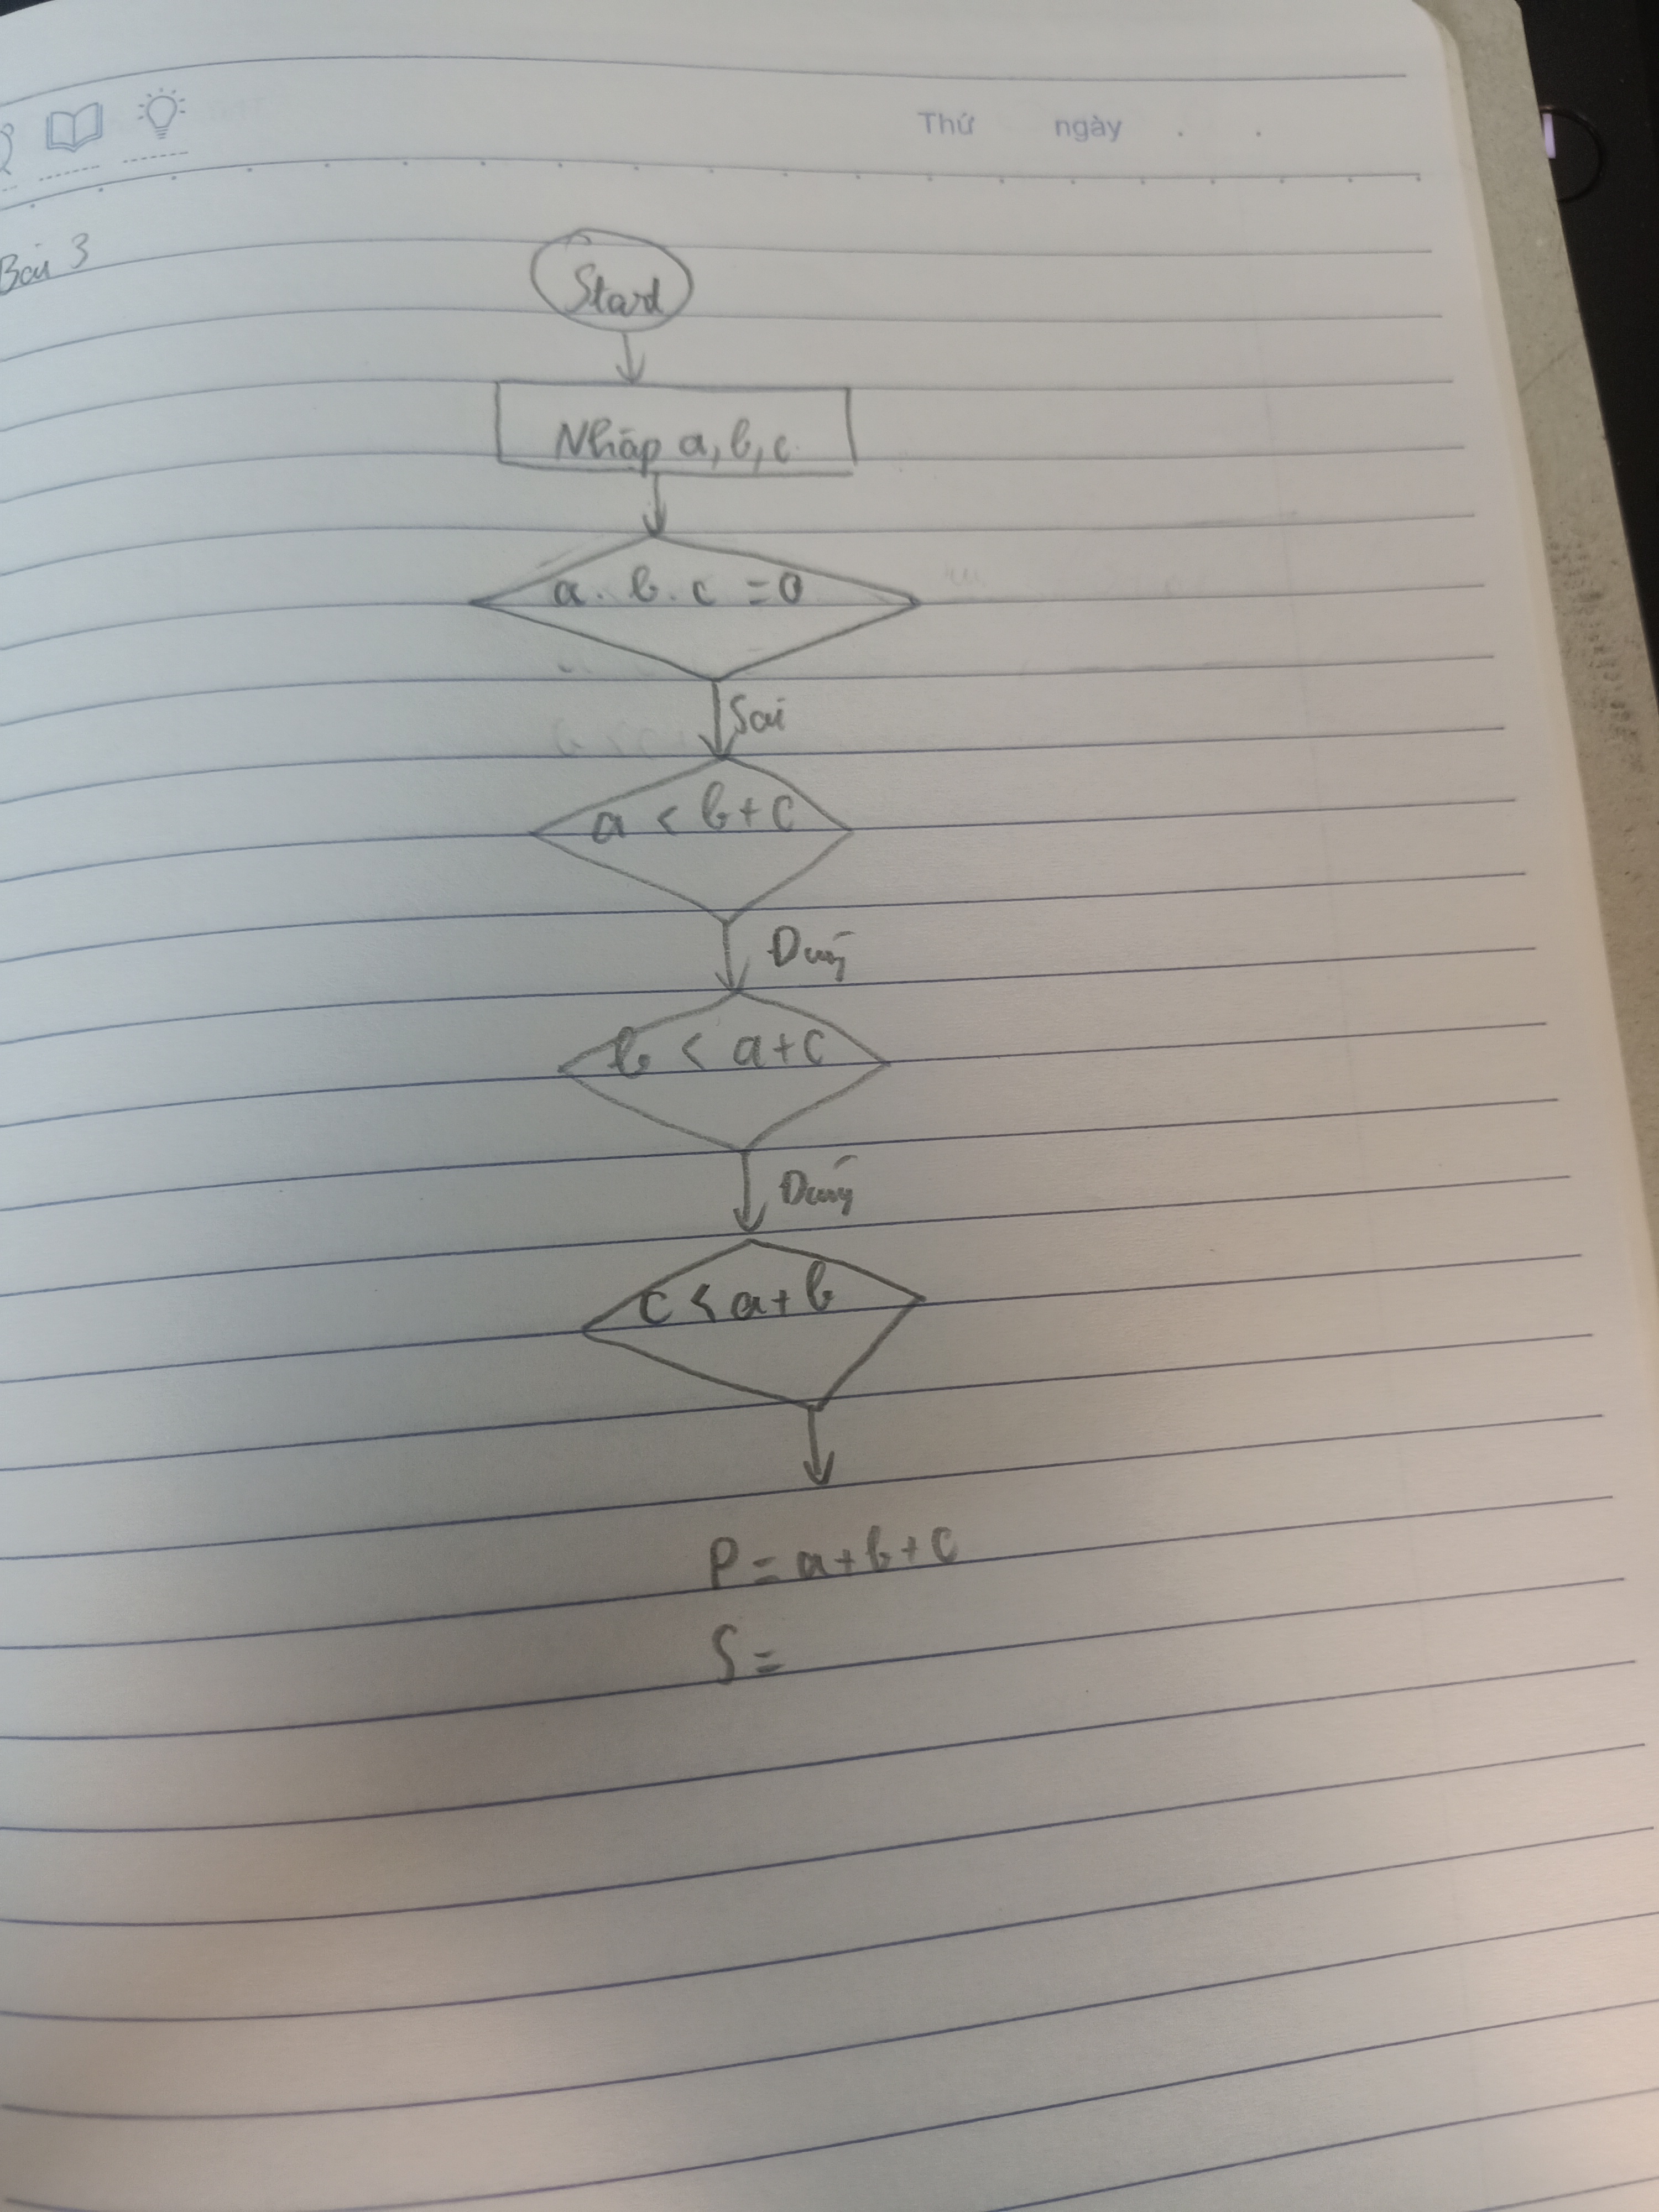 Thứ ngày . .
Bài 3
Start
Nhập a, b, c
a . b . c = 0
Sai
a < b + c
Đúng
b < a + c
Đúng
c < a + b
P = a + b + c
S =